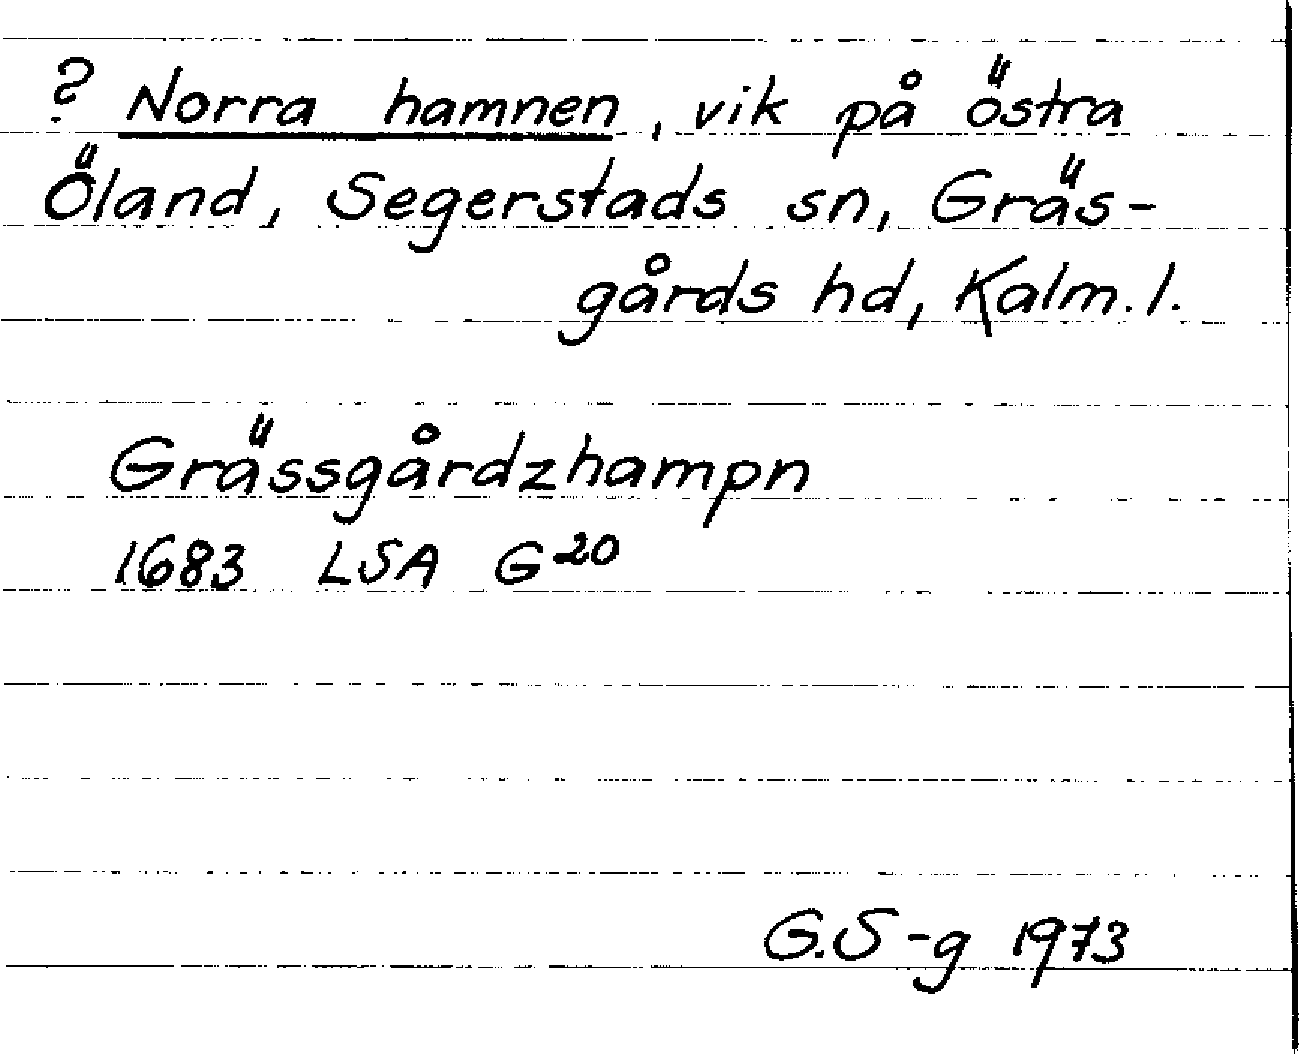 ? Norra hamnen, vik på östra
Öland, Segerstads sn, Gräs-
gårds hd, Kalm. l.
Grässgårdzhampn
1683 LSA G20
G.S-g 1973